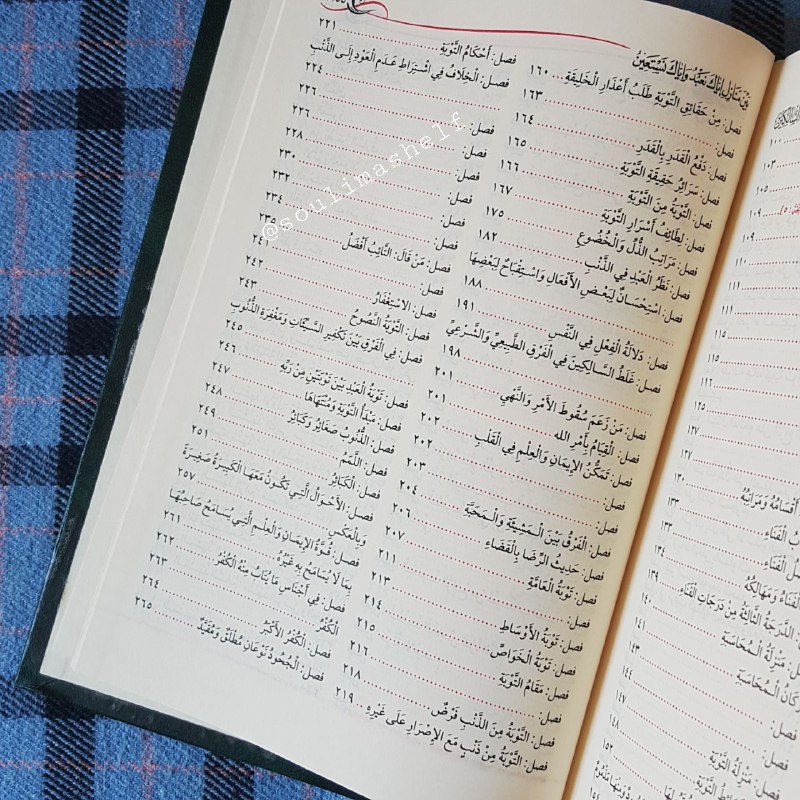 بَيْنَ مَنَازِلِ إِيَّاكَ نَعْبُدُ وَإِيَّاكَ نَسْتَعِينُ
فصل: مِنْ حَقَائِقِ التَّوْبَةِ طَلَبُ أَعْذَارِ الْخَلِيقَةِ ١٦٠
فصل: ١٦٣
فصل: دَفْعُ الْقَدَرِ بِالْقَدَرِ ١٦٤
فصل: سَرَائِرُ حَقِيقَةِ التَّوْبَةِ ١٦٥
فصل: التَّوْبَةُ مِنَ التَّوْبَةِ ١٦٦
فصل: لَطَائِفُ أَسْرَارِ التَّوْبَةِ ١٦٧
فصل: مَرَاتِبُ الذُّلِّ وَالْخُضُوعِ ١٧٥
فصل: نَظَرُ الْعَبْدِ فِي الذَّنْبِ ١٨٢
فصل: اسْتِحْسَانٌ لِبَعْضِ الْأَفْعَالِ وَاسْتِقْبَاحٌ لِبَعْضِهَا
١٨٨
فصل: دَلَالَةُ الْفِعْلِ فِي النَّفْسِ ١٩١
فصل: غَلَطُ السَّالِكِينَ فِي الْفَرْقِ الطَّبِيعِيِّ وَالشَّرْعِيِّ
١٩٨
فصل: مَنْ زَعَمَ سُقُوطَ الْأَمْرِ وَالنَّهْيِ ٢٠١
فصل: الْقِيَامُ بِأَمْرِ الله ٢٠١
فصل: تَمَكُّنُ الْإِيمَانِ وَالْعِلْمِ فِي الْقَلْبِ ٢٠٢
فصل: ٢٠٢
فصل: ٢٠٣
فصل: الْفَرْقُ بَيْنَ الْمَشِيئَةِ وَالْمَحَبَّةِ ٢٠٤
فصل: حَدِيثُ الرِّضَا بِالْقَضَاءِ ٢٠٦
فصل: تَوْبَةُ الْعَامَّةِ ٢٠٧
فصل: ٢١١
فصل: تَوْبَةُ الْأَوْسَاطِ ٢١٣
فصل: تَوْبَةُ الْخَوَاصِّ ٢١٤
فصل: مَقَامُ التَّوْبَةِ ٢١٥
فصل: ٢١٦
فصل: التَّوْبَةُ مِنَ الذَّنْبِ فَرْضٌ ٢١٨
فصل: التَّوْبَةُ مِنْ ذَنْبٍ مَعَ الْإِصْرَارِ عَلَى غَيْرِهِ ٢١٩
فصل: أَحْكَامُ التَّوْبَةِ ٢٢١
فصل: الْخِلَافُ فِي اشْتِرَاطِ عَدَمِ الْعَوْدِ إِلَى الذَّنْبِ
٢٢٤
فصل: ٢٢٦
فصل: ٢٢٦
فصل: ٢٢٨
فصل: ٢٣٠
فصل: ٢٣٢
فصل: ٢٣٤
فصل: مَنْ قَالَ: التَّائِبُ أَفْضَلُ ٢٣٥
فصل:
فصل: الِاسْتِغْفَارُ ٢٤٢
فصل: التَّوْبَةُ النَّصُوحُ ٢٤٣
فصل: فِي الْفَرْقِ بَيْنَ تَكْفِيرِ السَّيِّئَاتِ وَمَغْفِرَةِ الذُّنُوبِ
٢٤٥
فصل: تَوْبَةُ الْعَبْدِ بَيْنَ تَوْبَتَيْنِ مِنْ رَبِّهِ ٢٤٦
فصل: مَبْدَأُ التَّوْبَةِ وَمُنْتَهَاهَا ٢٤٧
فصل: الذُّنُوبُ صَغَائِرُ وَكَبَائِرُ ٢٤٨
فصل: اللَّمَمُ ٢٤٩
فصل: الْكَبَائِرُ ٢٥١
فصل: الْأَحْوَالُ الَّتِي تَكُونُ مَعَهَا الْكَبِيرَةُ صَغِيرَةً
وَبِالْعَكْسِ ٢٥٧
فصل: قُوَّةُ الْإِيمَانِ وَالْعِلْمِ الَّتِي يُسَامَحُ صَاحِبُهَا
بِمَا لَا يُسَامَحُ بِهِ غَيْرُهُ ٢٦١
فصل: فِي أَجْنَاسِ مَا يُتَابُ مِنْهُ الْكُفْرُ ٢٦٢
الْكُفْرُ ٢٦٣
فصل: الْكُفْرُ الْأَكْبَرُ ٢٦٤
فصل: الْجُحُودُ نَوْعَانِ مُطْلَقٌ وَمُقَيَّدٌ ٢٦٥
@soulimashelf
١٠٣
١٠٥
١٠٩
١٠٩
١١٠
١١١
١١١
١١٥
١١٥
١١٦
١٢٥
١٢٧
١٢٧
أَقْسَامُهُ وَمَرَاتِبُهُ
١٣٣
١٣٣
١٣٤
الدَّرَجَةُ الثَّالِثَةُ مِنْ دَرَجَاتِ الْفَنَاءِ ١٣٩
مَنْزِلَةُ الْمُحَاسَبَةِ ١٤٠
١٤١
١٤٣
١٤٧
١٤٨
مَنْزِلَةُ التَّوْبَةِ ١٥٢